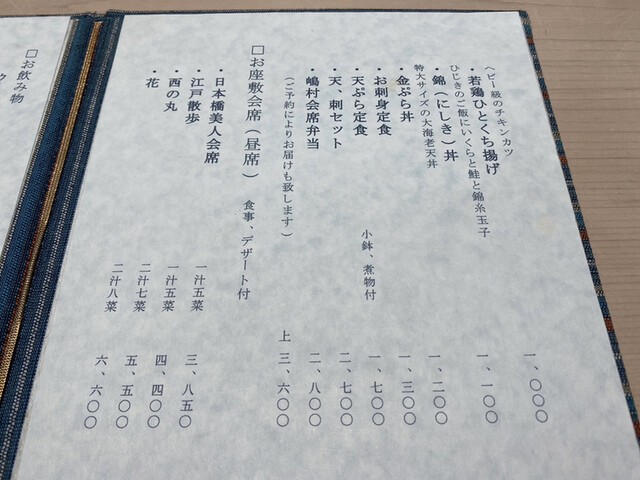 ヘビー級のチキンカツ
・若鶏ひとくち揚げ 一、〇〇〇
ひじきのご飯にいくらと鮭と錦糸玉子
・錦(にしき)丼 一、一〇〇
特大サイズの大海老天丼
・金ぷら丼 一、二〇〇
・お刺身定食 一、三〇〇
・天ぷら定食 小鉢、煮物付 一、七〇〇
・天、刺セット 二、七〇〇
・嶋村会席弁当 二、八〇〇
(ご予約によりお届けも致します) 上 三、六〇〇
□お座敷会席(昼席) 食事、デザート付
・日本橋美人会席 一汁五菜 三、八五〇
・江戸散歩 一汁五菜 四、四〇〇
・西の丸 二汁七菜 五、五〇〇
・花 二汁八菜 六、六〇〇
□お飲み物